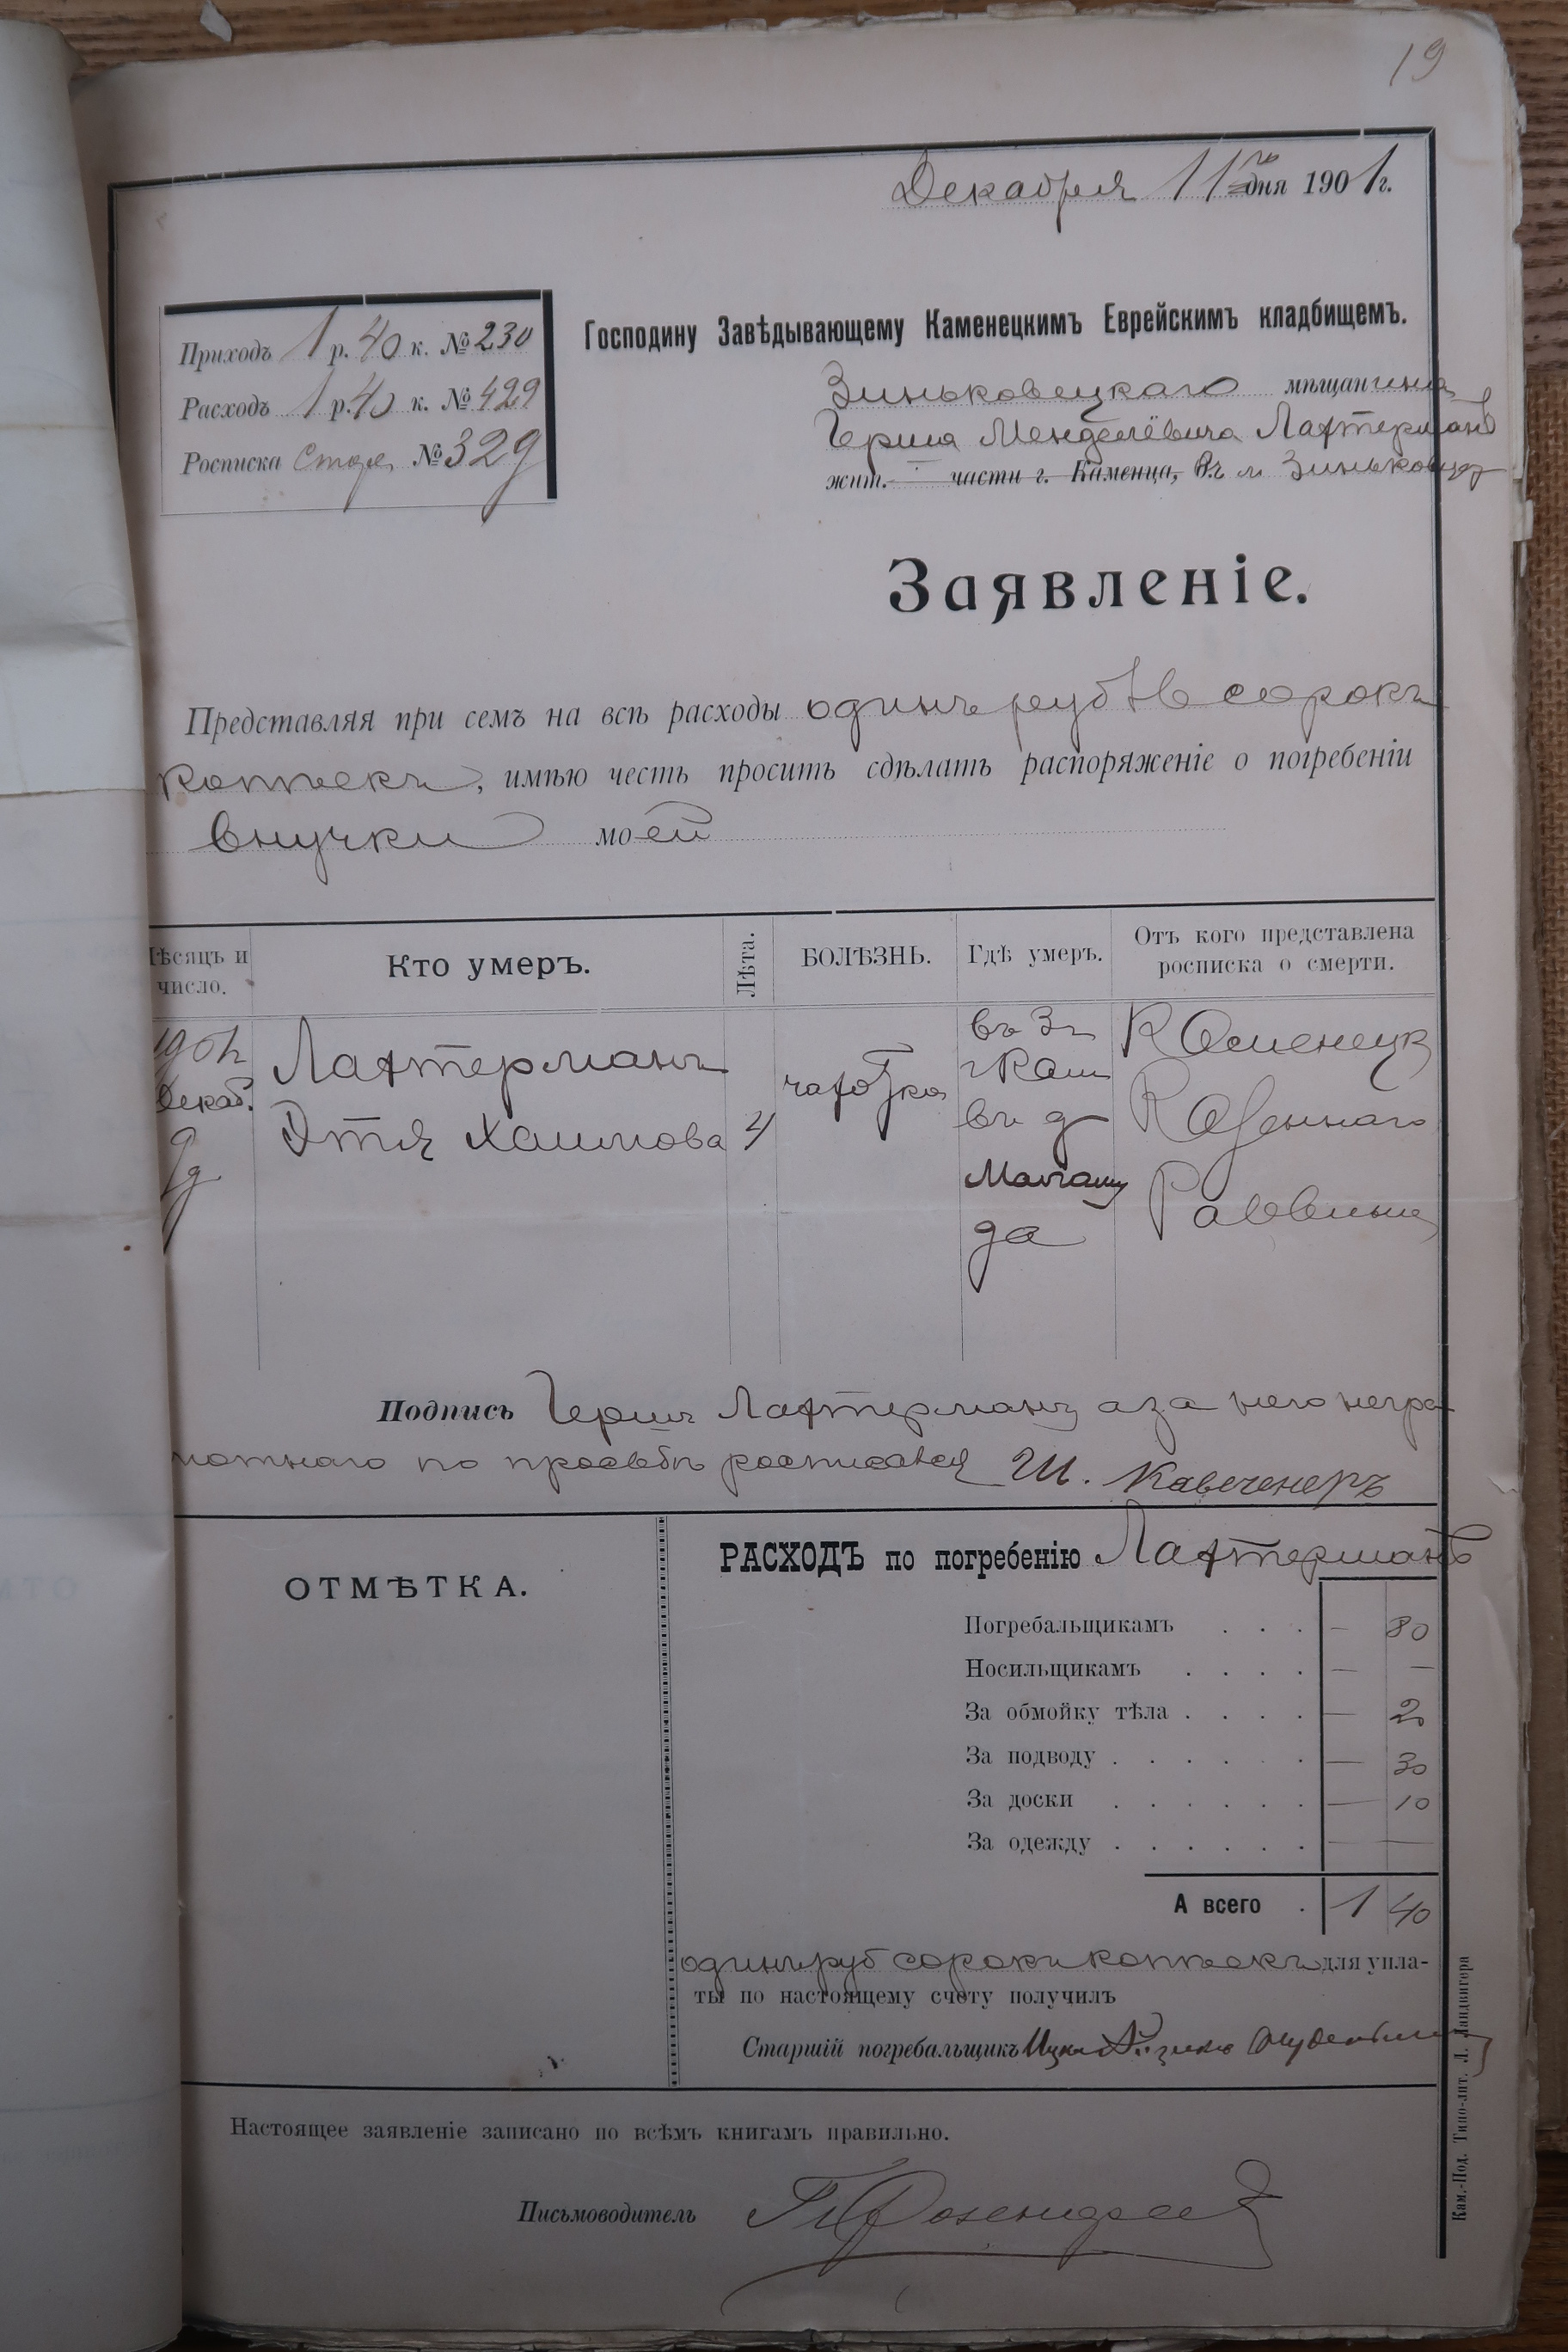 19
Декабря 11го дня 1901 г.
Приходъ 1 р. 40 к. № 230
Расходъ 1 р. 40 к. № 429
Росписка № 329
Господину Завѣдывающему Каменецкимъ Еврейскимъ кладбищемъ.
Зиньковецкаго мѣщанина
Герша Менделёвича Лахтерманъ
жит. части г. Каменца, въ м Зиньковцах
Заявленіе.
Представляя при семъ на всѣ расходы одинъ рубль сорокъ
копѣекъ, имѣю честь просить сдѣлать распоряженіе о погребеніи
внучки моей
Мѣсяцъ и число.
Кто умеръ.
Лѣта.
БОЛѢЗНЬ.
Гдѣ умеръ.
Отъ кого представлена росписка о смерти.
1901г
Декаб.
9 д
Лахтерманъ
Этя Хаимова
4
чахотка
въ
г Кам
въ д
да
Каменецк
Казеннаго
Раввина
Подпись Герш Лахтерманъ а за него негра
мотнаго по просьбѣ росписался Ш.
ОТМѢТКА.
РАСХОДЪ по погребенію Лахтерманъ
Погребальщикамъ . . . — 80
Носильщикамъ . . . . — —
За обмойку тѣла . . . . — 20
За подводу . . . . . . — 30
За доски . . . . . . — 10
За одежду . . . . . . — —
А всего . 1 40
одинъ руб сорокъ копѣекъ для упла-
ты по настоящему счету получилъ
Старшій погребальщикъ Ицко
Настоящее заявленіе записано по всѣмъ книгамъ правильно.
Письмоводитель
Кам.-Под. Типо-лит. Л. Ландвигера